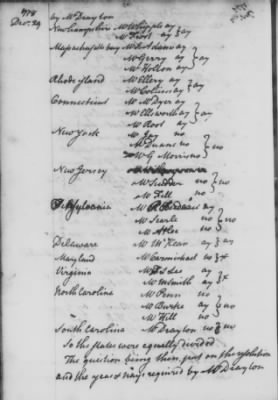 1778
Decr. 24
by Mr Drayton
New hampshire Mr Whipple ay } ay
Mr Frost ay
Massachusetts bay Mr
Mr Gerry ay } ay
Mr Holten ay
Rhode island Mr Ellery ay } ay
Mr Collins ay
Connecticut Mr Dyer ay
Mr Ellsworth ay } ay
Mr Root ay
New York Mr Jay no
Mr Duane no } no
Mr G Morris no
New Jersey
Mr Scudder no } no
Mr Fell no
Pensylvania Mr
Mr Searle no } no
Mr Atlee no
Delaware Mr McKean ay } ay
Maryland Mr Carmichael no } x
Virginia Mr
Mr M Smith ay } x
North Carolina Mr Penn no
Mr Burke ay } no
Mr Hill no
South Carolina Mr Drayton no } no
So the states were equally divided
The question being then put on the resolution
and the yeas & nays required by Mr Drayton